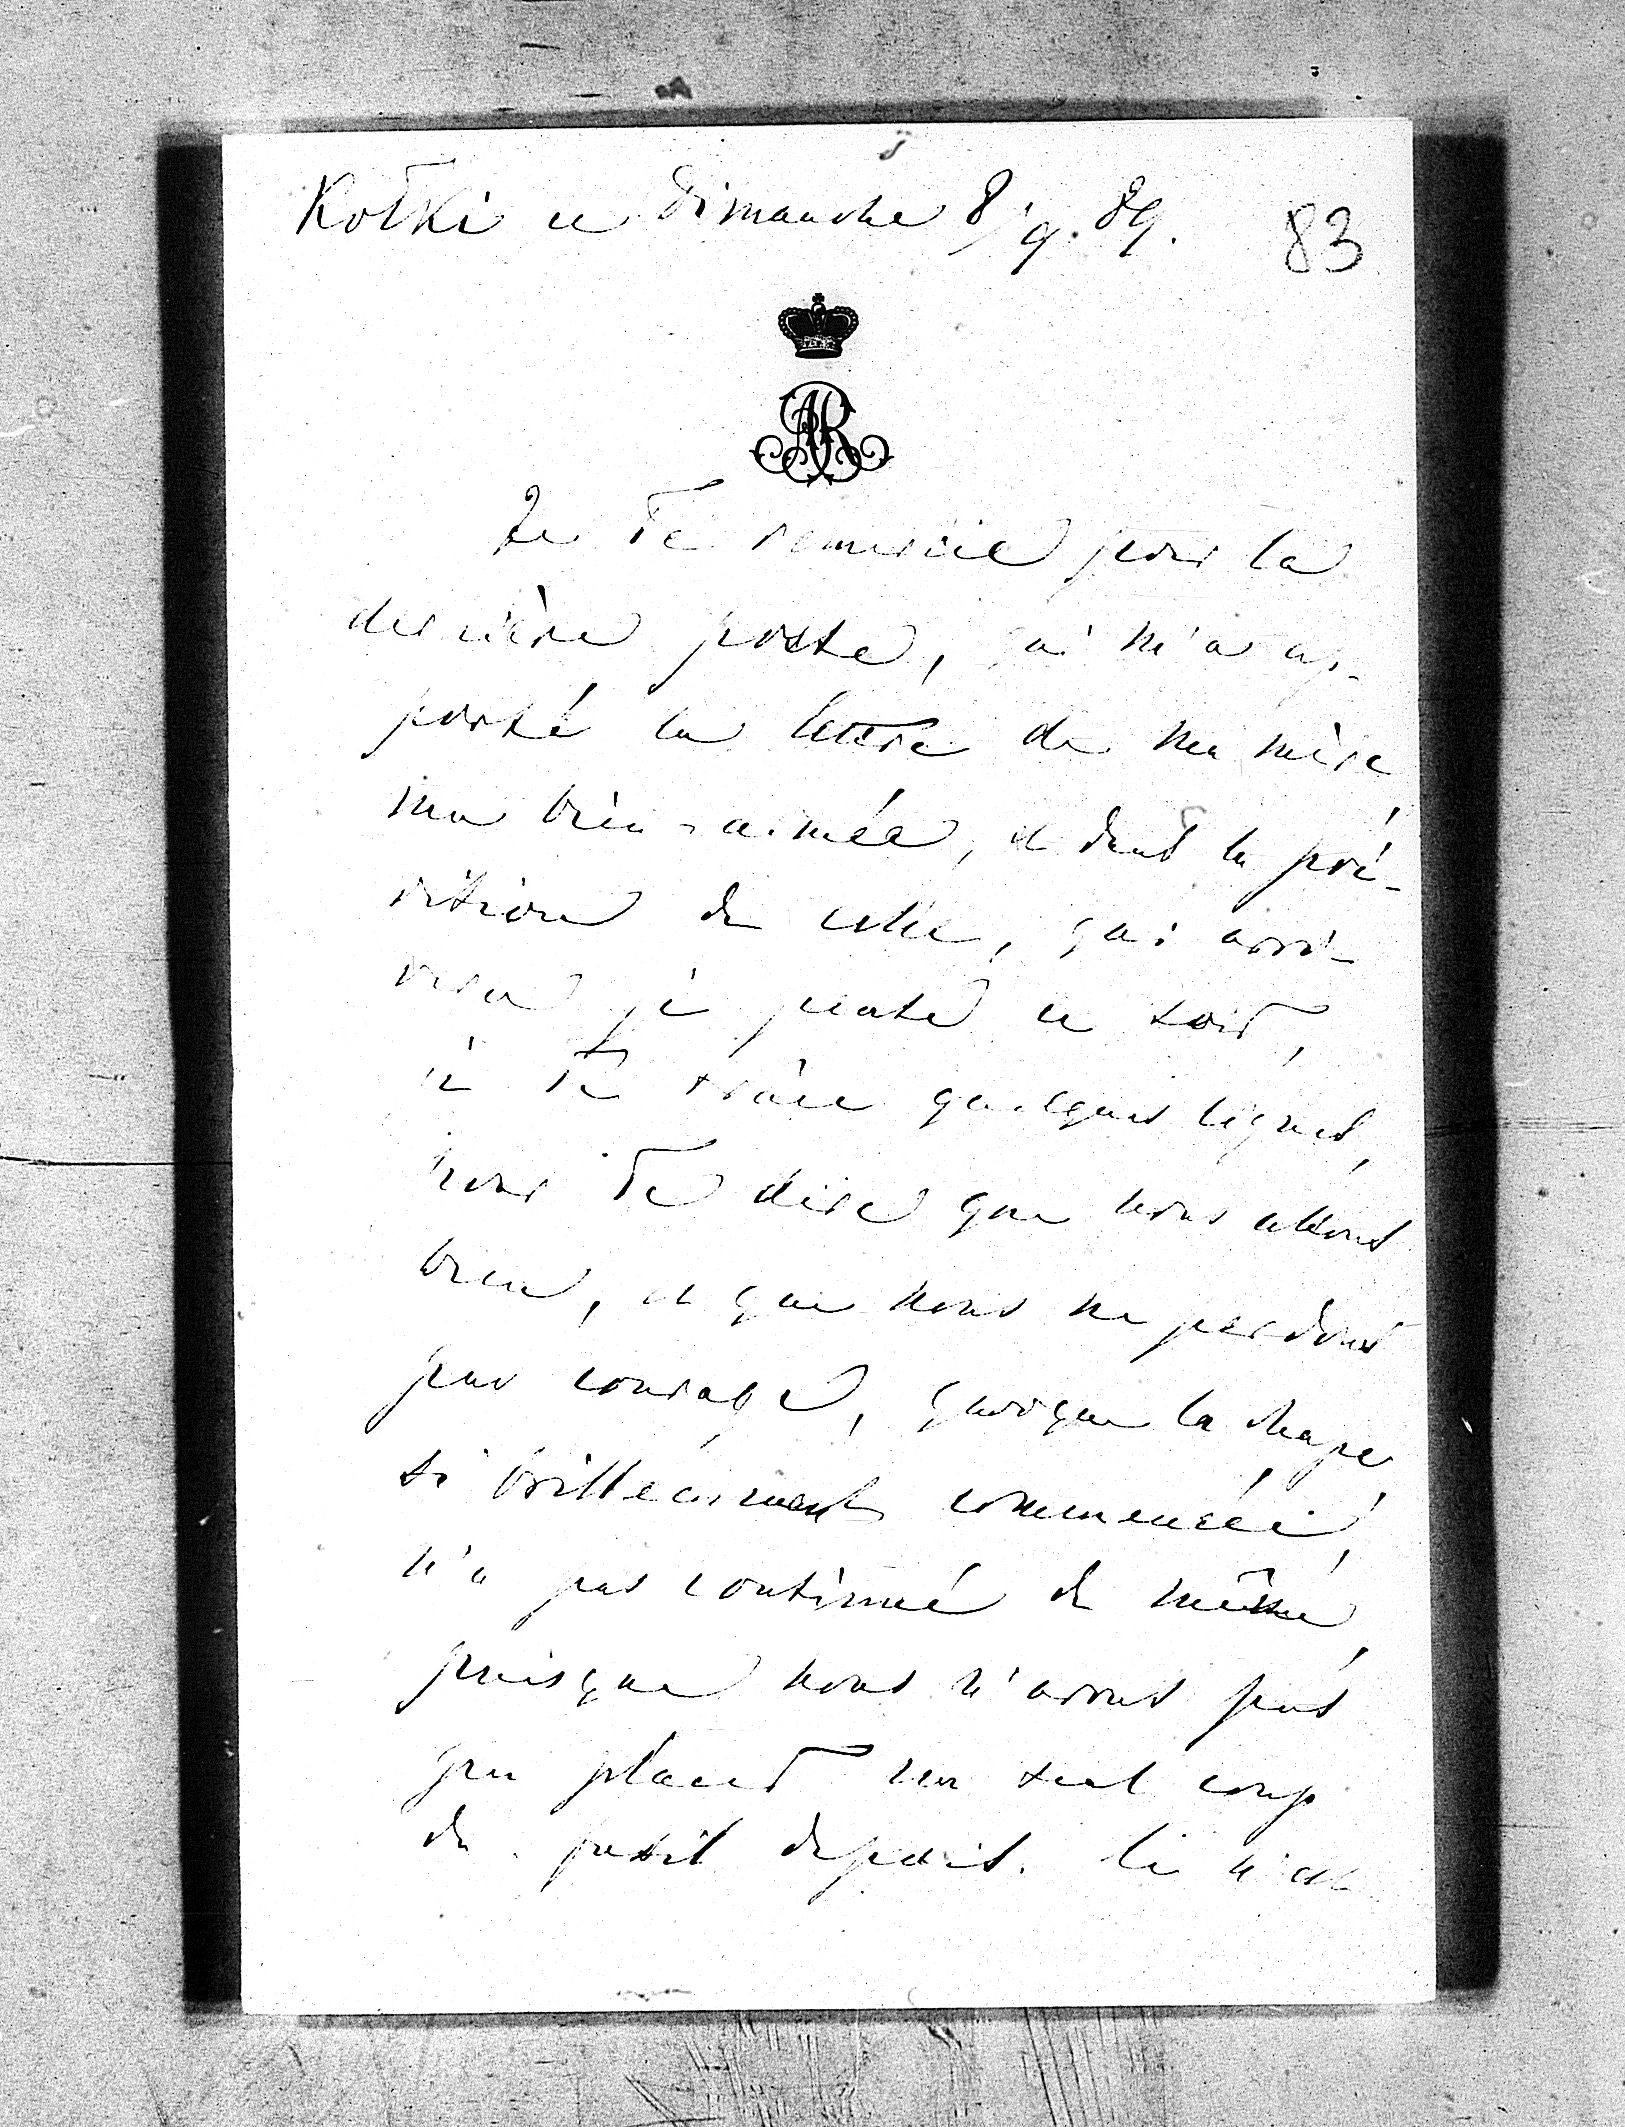 Kołki ce Dimanche 8/9. 89.
83
AR
Je Te remercie pour la
dernière poste, qui m'a ap-
porté la lettre de ma mère
ma bien-aimée, et dans la pré-
vision de celle, qui arri-
vera je pense ce soir,
je Te trace quelques lignes,
pour Te dire que nous allons
bien, et que nous ne perdons
pas courage, quoique la chasse
si brillamment commencée,
n'a pas continué de même,
puisque nous n'avons pas
pu placer un seul coup
de fusil depuis. Ce n'est